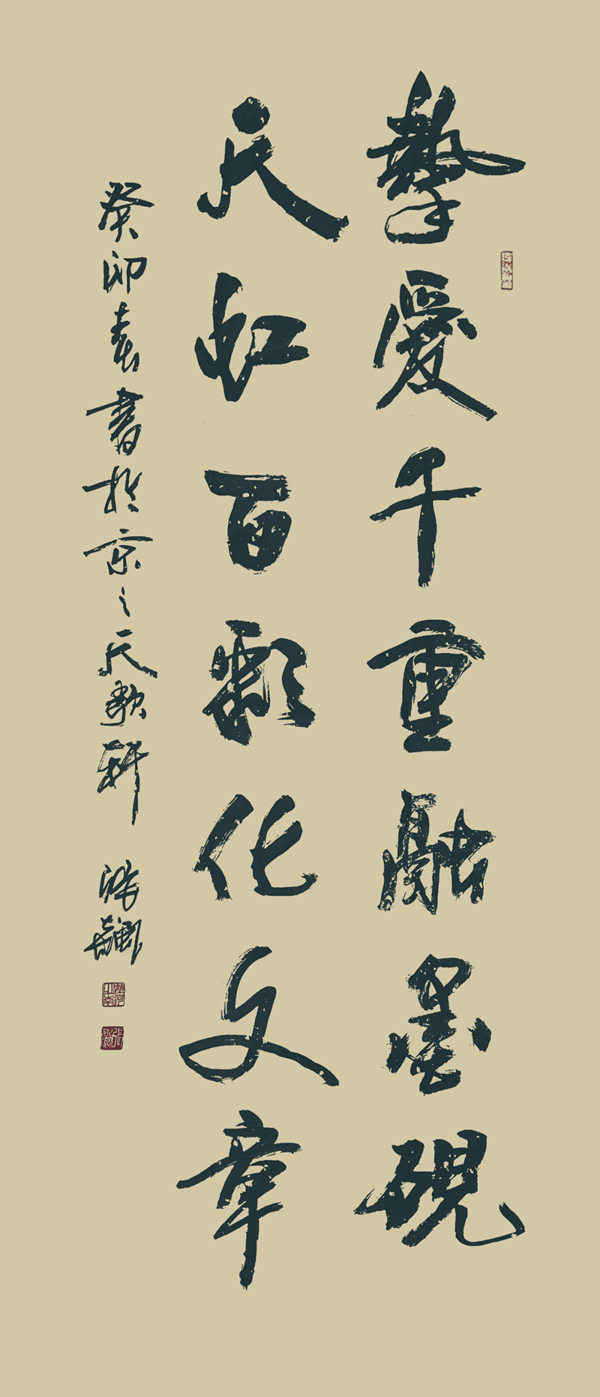 摯愛千重融墨硯
天虹百彩化文章
癸卯春書於京之天歌軒